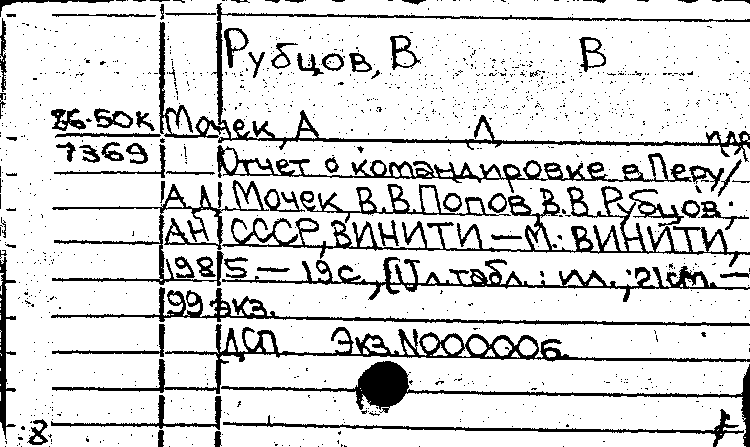 Рубцов, В В
86-50К Мочек, А Л
7369 Отчет о командировке в Перу/
А.Л. Мочек, В.В. Попов, В.В. Рубцов;
АН СССР, ВИНИТИ — М.: ВИНИТИ,
1985. — 19 с., [1] л. табл. : ил. ; 21 см. —
99 экз.
ДСП Экз. N000006.
:8